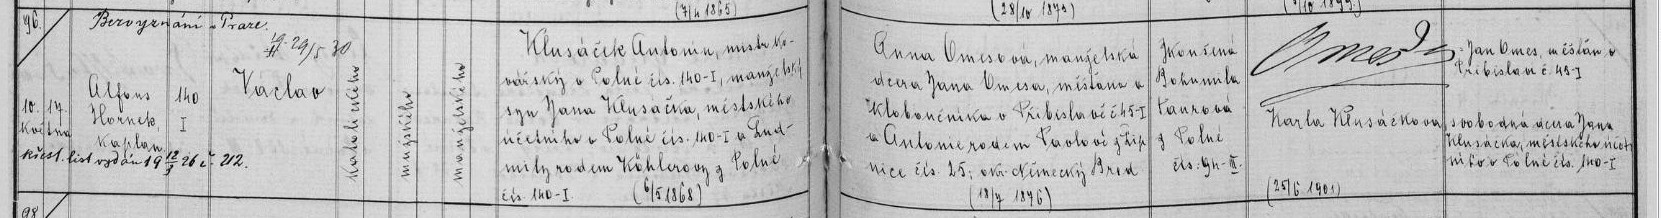 (7/4 1865)
(28/10 1879)
96.
Bezvyznání v Praze
29/5 30
10. 17.
května
Alfons
Hornek,
kaplan
140
I
Václav
katolického
mužského
manželského
křest. list vydán 19 12/9 26 č. 212.
Klusáček Antonín, mistr ko-
vářský v Polné čís. 140-I, manželský
syn Jana Klusáčka, městského
účetního v Polné čís. 140-I a Lud-
mily rodem Köhlerovy z Polné
čís. 140-I. (6/5 1868)
Anna Omesová, manželská
dcera Jana Omesa, měšťana a
kloboučníka v Přibislavi č 45-I
a Antonie rodem Pavlové z Lip-
nice čís. 25; okr. Německý Brod
(18/7 1876)
zkoušená
Bohumila
z Polné
čís. 94-II.
Omes
Jan Omes, měšťan v
Přibislavi č. 45-I
Karla Klusáčkova,
svobodná dcera Jana
Klusáčka, městského účet-
ního v Polné čís. 140-I
(25/6 1901)
98.